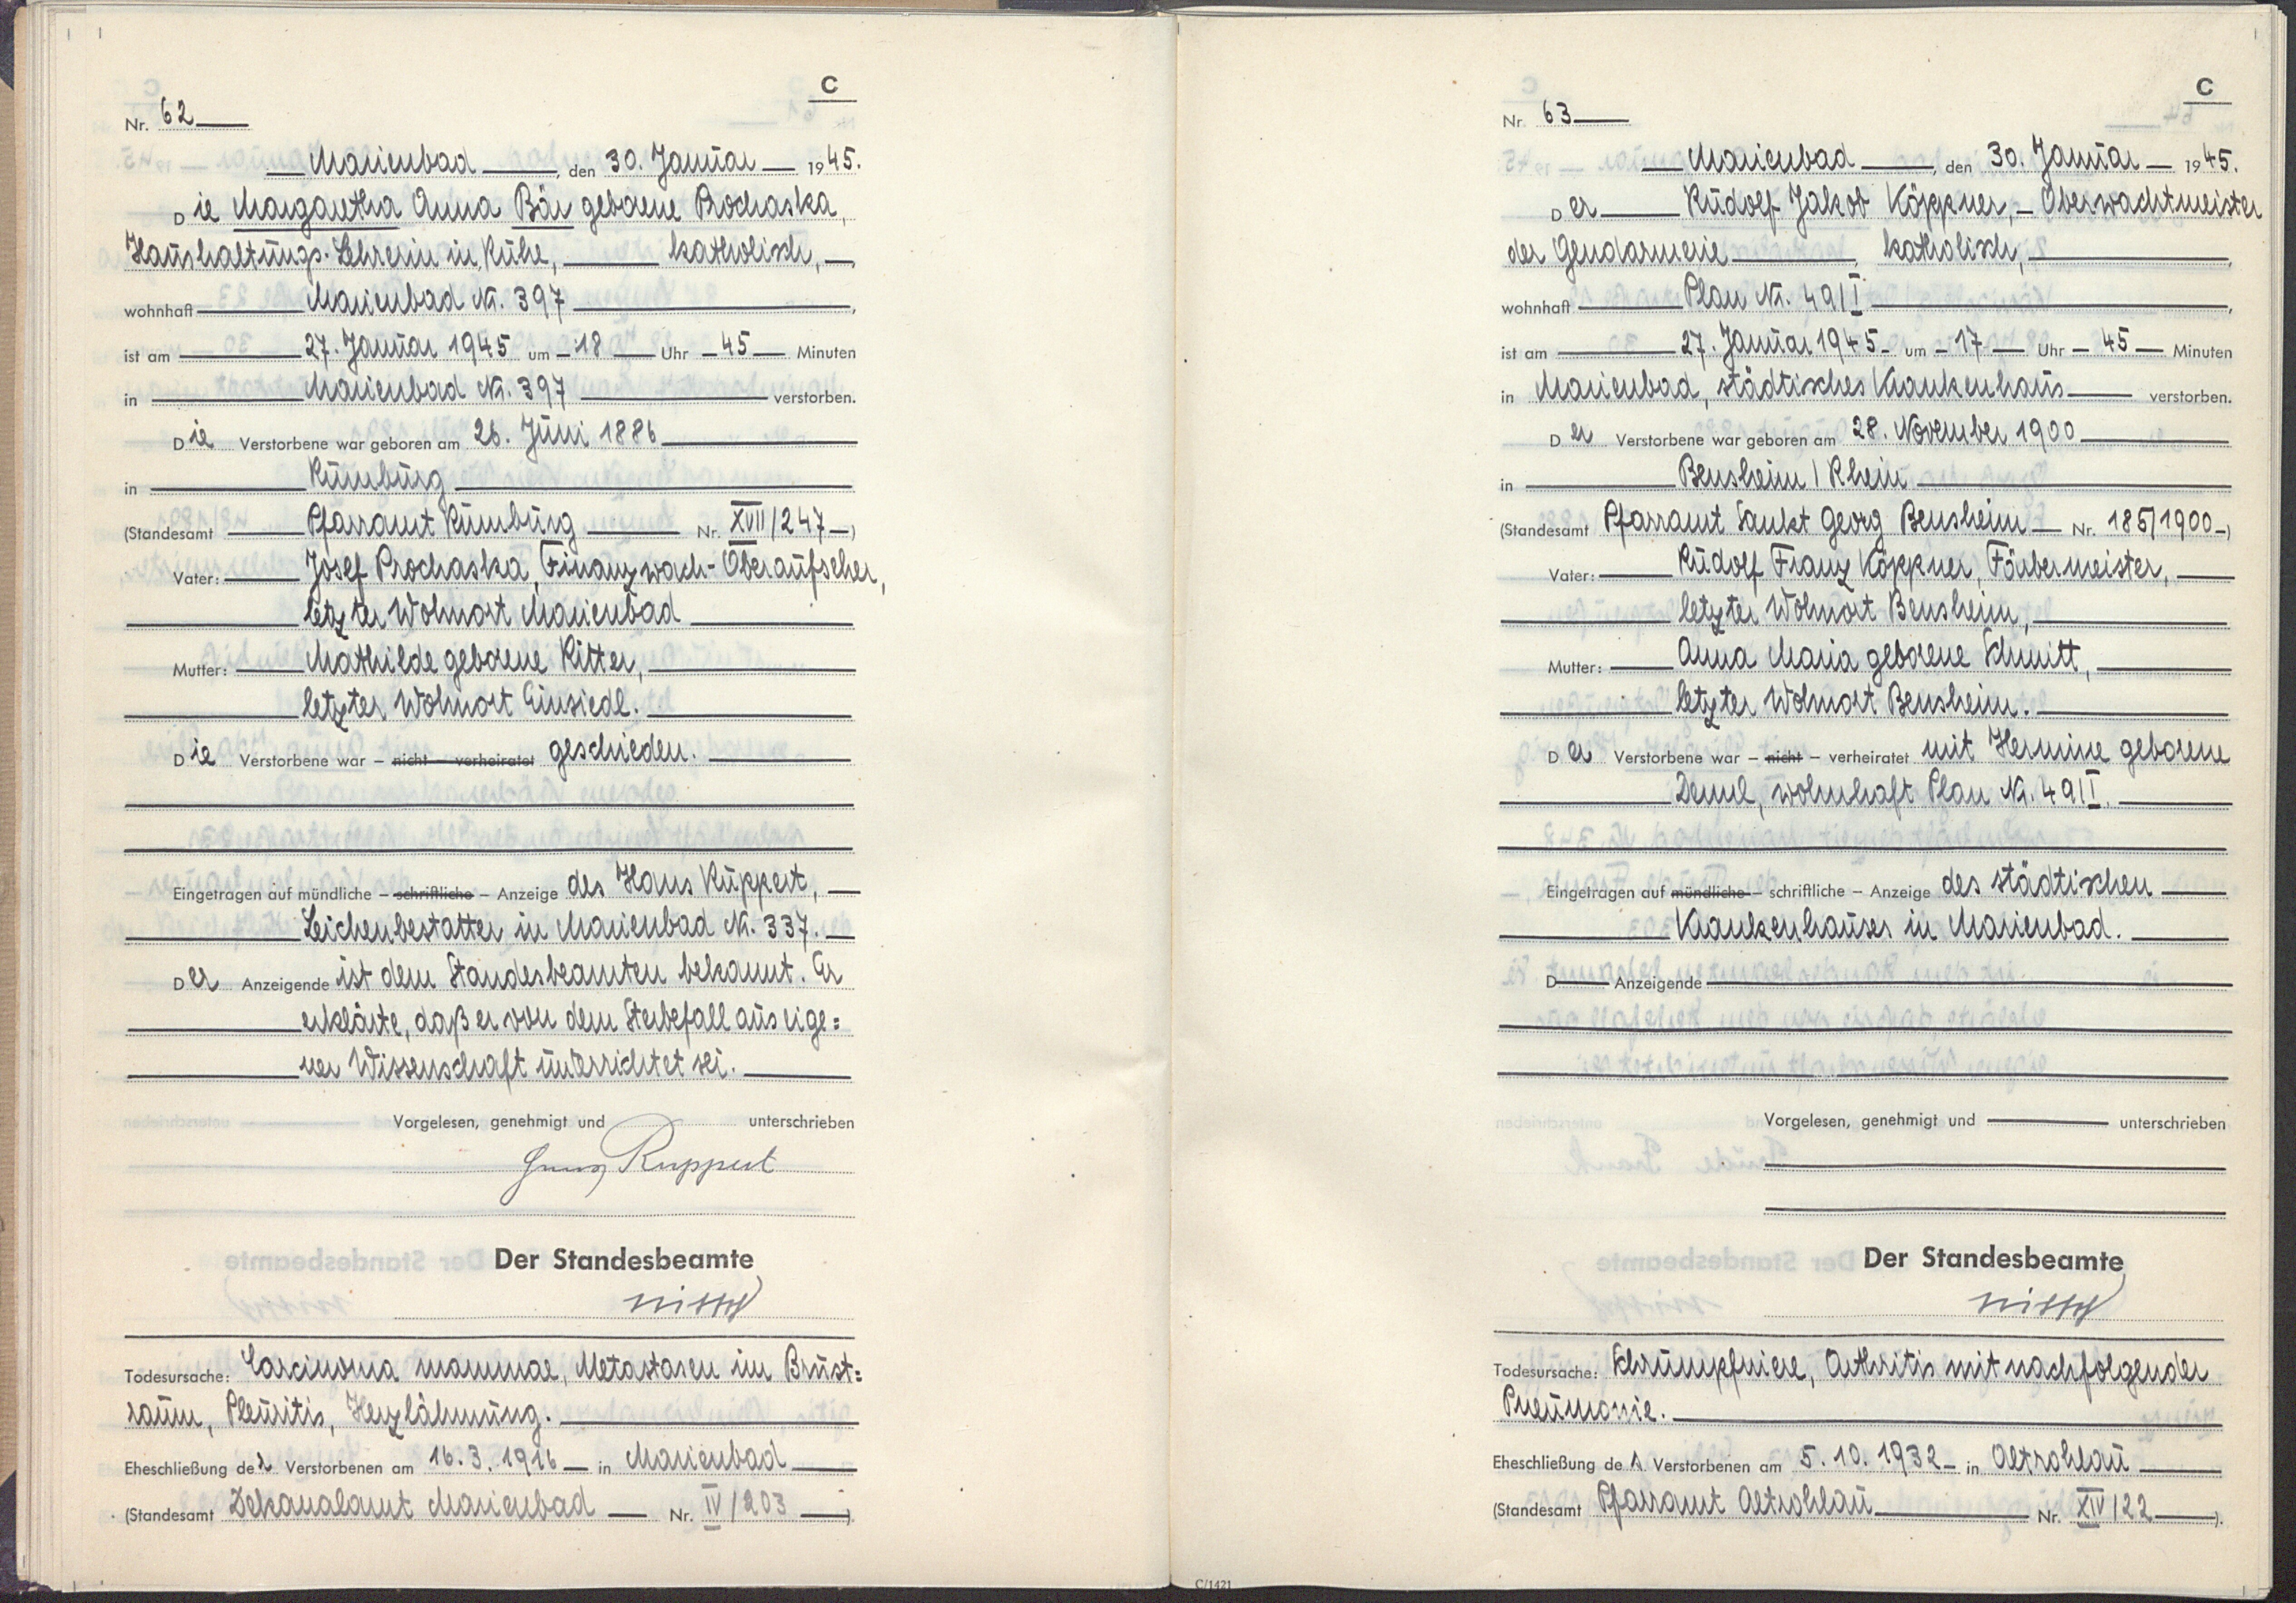 C
Nr. 62
Marienbad, den 30. Januar 1945.
Die Margaretha Anna Bär geborene Prochaska,
Haushaltungs-Lehrerin in Ruhe, katholisch,
wohnhaft Marienbad Nr. 397,
ist am 27. Januar 1945 um 18 Uhr 45 Minuten
in Marienbad Nr. 397 verstorben.
Die Verstorbene war geboren am 26. Juni 1886
in Rumburg
(Standesamt Pfarramt Rumburg Nr. XVII/247)
Vater: Josef Prochaska, Finanzwach-Oberaufseher,
letzter Wohnort Marienbad
Mutter: Mathilde geborene Ritter,
letzter Wohnort Einsiedl.
Die Verstorbene war – nicht – verheiratet geschieden.
Eingetragen auf mündliche – schriftliche – Anzeige des Hans Ruppert,
Leichenbestatter in Marienbad Nr. 337.
Der Anzeigende ist dem Standesbeamten bekannt. Er
erklärte, daß er von dem Sterbefall aus eige=
ner Wissenschaft unterrichtet sei.
Vorgelesen, genehmigt und unterschrieben
Hans Ruppert
Der Standesbeamte
Todesursache: Carcinoma mammae, Metastasen im Brust=
raum, Pleuritis, Herzlähmung.
Eheschließung der Verstorbenen am 16.3.1916 in Marienbad
(Standesamt Dekanalamt Marienbad Nr. IV/203).
C
Nr. 63
Marienbad, den 30. Januar 1945.
Der Rudolf Jakob Köppner, Oberwachtmeister
der Gendarmerie, katholisch,
wohnhaft Plan Nr. 49/I,
ist am 27. Januar 1945 um 17 Uhr 45 Minuten
in Marienbad, städtisches Krankenhaus verstorben.
Der Verstorbene war geboren am 28. November 1900
in Bensheim/Rhein
(Standesamt Pfarramt Sankt Georg Bensheim Nr. 185/1900)
Vater: Rudolf Franz Köppner, Färbermeister,
letzter Wohnort Bensheim,
Mutter: Anna Maria geborene Schmitt,
letzter Wohnort Bensheim.
Der Verstorbene war – nicht – verheiratet mit Hermine geborene
Deml, wohnhaft Plan Nr. 49/I.
Eingetragen auf mündliche – schriftliche – Anzeige des städtischen
Krankenhauses in Marienbad.
D Anzeigende
Vorgelesen, genehmigt und unterschrieben
Der Standesbeamte
Todesursache: Schrumpfniere, Arthritis mit nachfolgender
Pneumonie.
Eheschließung des Verstorbenen am 5.10.1932 in Altrohlau
(Standesamt Pfarramt Altrohlau Nr. XIV/22).
C/1421